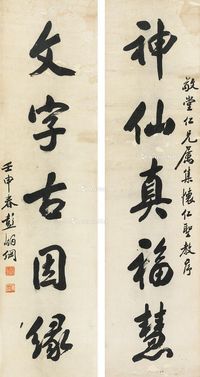 敬堂仁兄属集怀仁圣教序
神仙真福慧
文字古因缘
壬申春彭炳纲